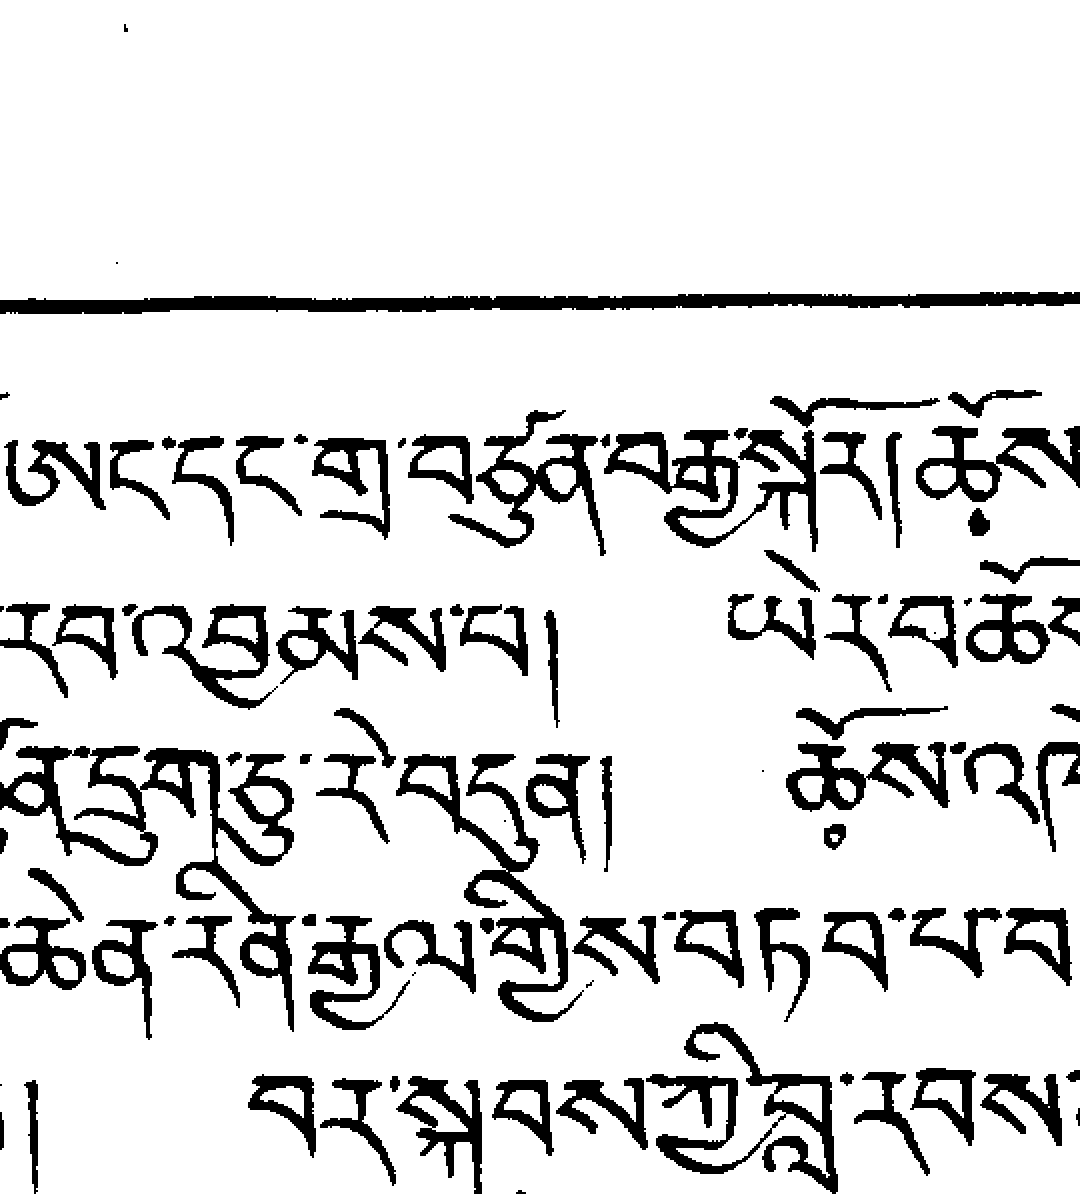 ཨང་དང་གྲ་བཙུན་བརྒྱ་སྐོར། ཆོས
རབ་འབྱམས་པ། ཡེ་ར་བ་ཆོས
ན་དྲུག་ཅུ་རེ་བདུན། ཆོས་འཁ
ཆེན་རིན་རྒྱལ་གྱིས་བཏབ་པ་པ
། བར་སྐབས་ཀྱི་བླ་རབས